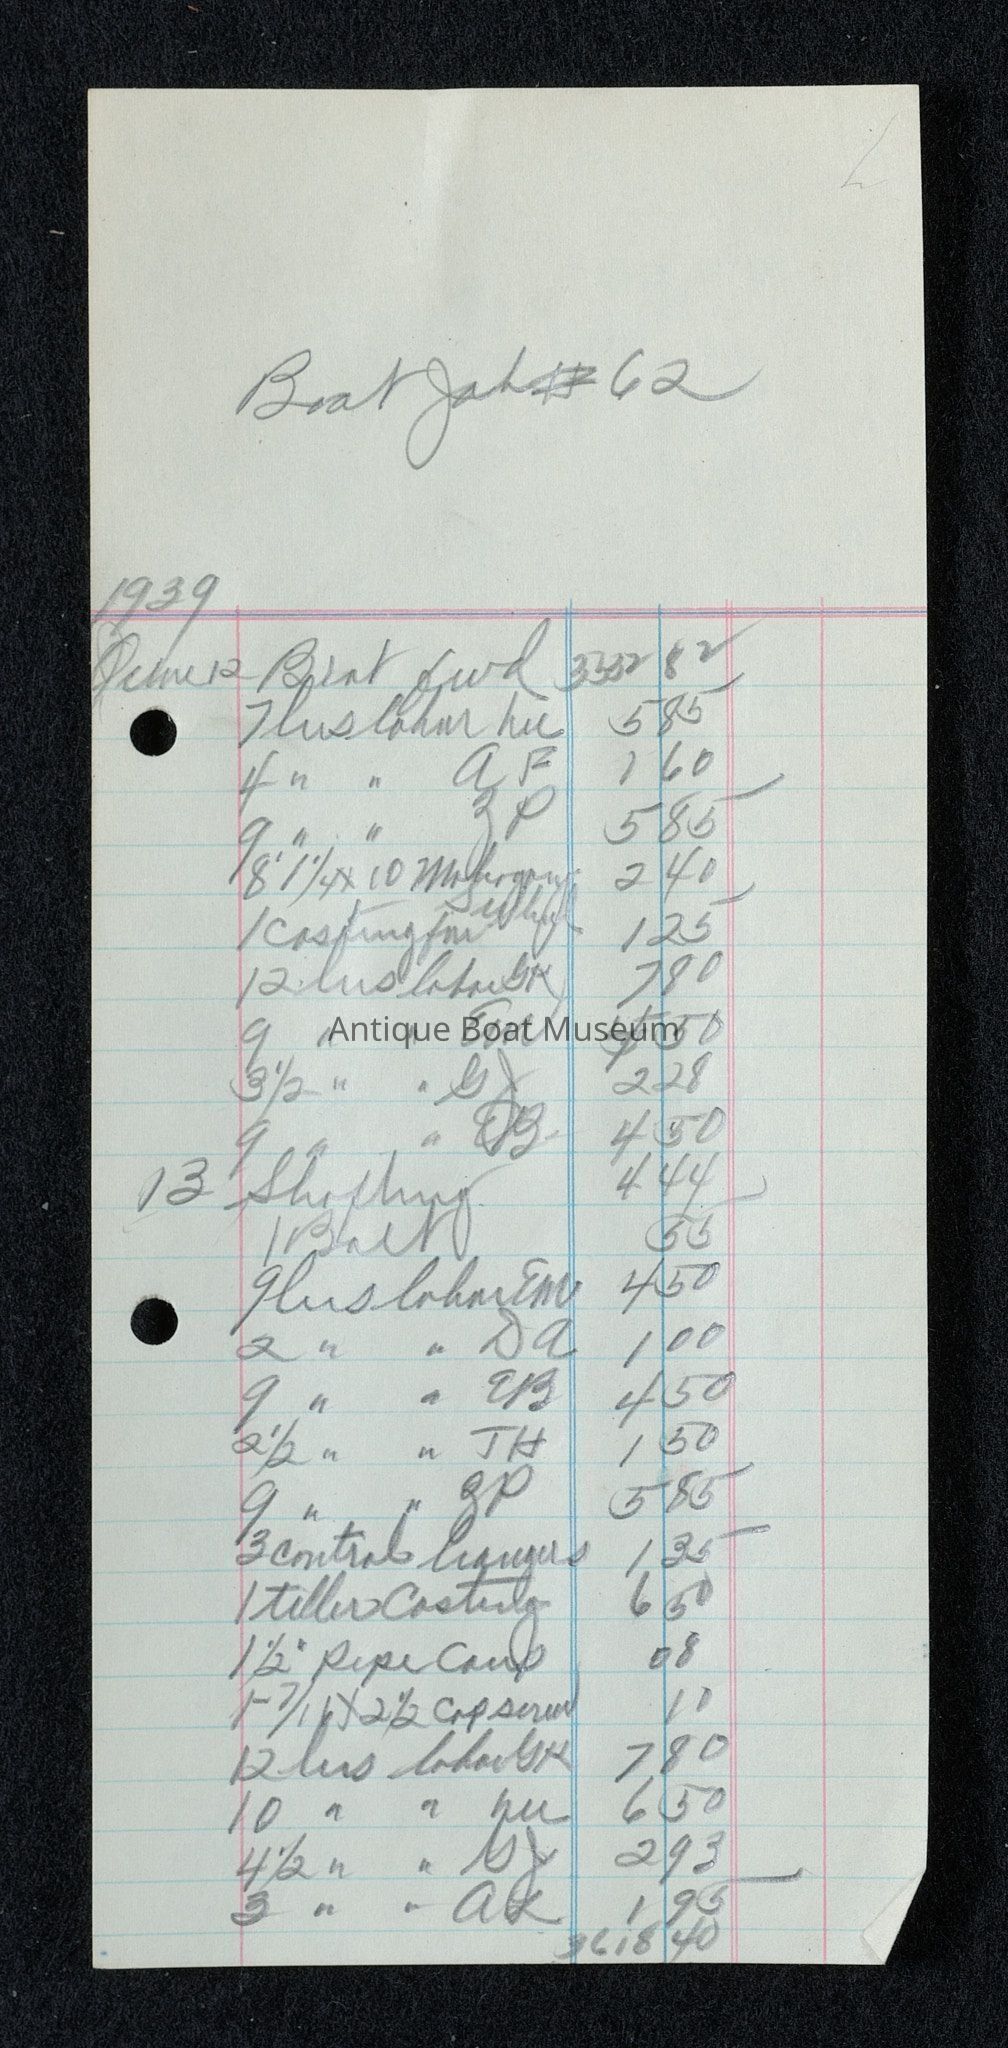 Boat Job # 62
1939
June 12 Brot fwd 82
hrs labor 5 85
4 " " A F 1 60
9 " " 3 P 5 85
8' 1 1/4 x 10 Mahogany 2 40
1 casting for 1 25
12 hrs labor GK 7 80
9 " " Em 4 50
Antique Boat Museum
3 1/2 " " GJ 2 28
9 " " EB 4 50
13 Shafting 4 44
1 Bolt 55
9 hrs labor Em 4 50
2 " " DA 1 00
9 " " EB 4 50
2 1/2 " " JH 1 50
9 " " 3P 5 85
3 control hangers 1 35
1 tiller Casting 6 50
1 1/2" pipe Cap 08
1-7/16 x 2 1/2 cap screw 10
12 hrs labor GK 7 80
10 " " 6 50
4 1/2 " " GJ 2 93
3 " " AK 1 95
3618 40